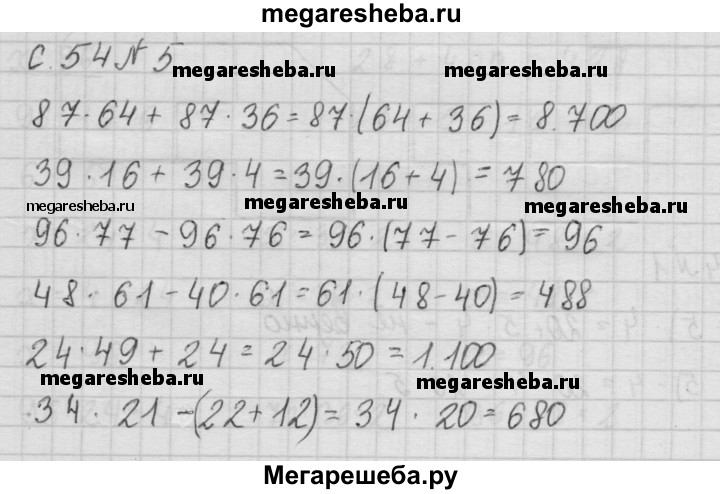 megaresheba.ru
С. 54 № 5
megaresheba.ru megaresheba.ru
87·64 + 87·36 = 87·(64 + 36) = 8.700
39·16 + 39·4 = 39·(16 + 4) = 780
megaresheba.ru megaresheba.ru megaresheba.ru
96·77 - 96·76 = 96·(77 - 76) = 96
48·61 - 40·61 = 61·(48 - 40) = 488
24·49 + 24 = 24·50 = 1.100
megaresheba.ru megaresheba.ru
34·21 - (22 + 12) = 34·20 = 680
Мегарешеба.ру